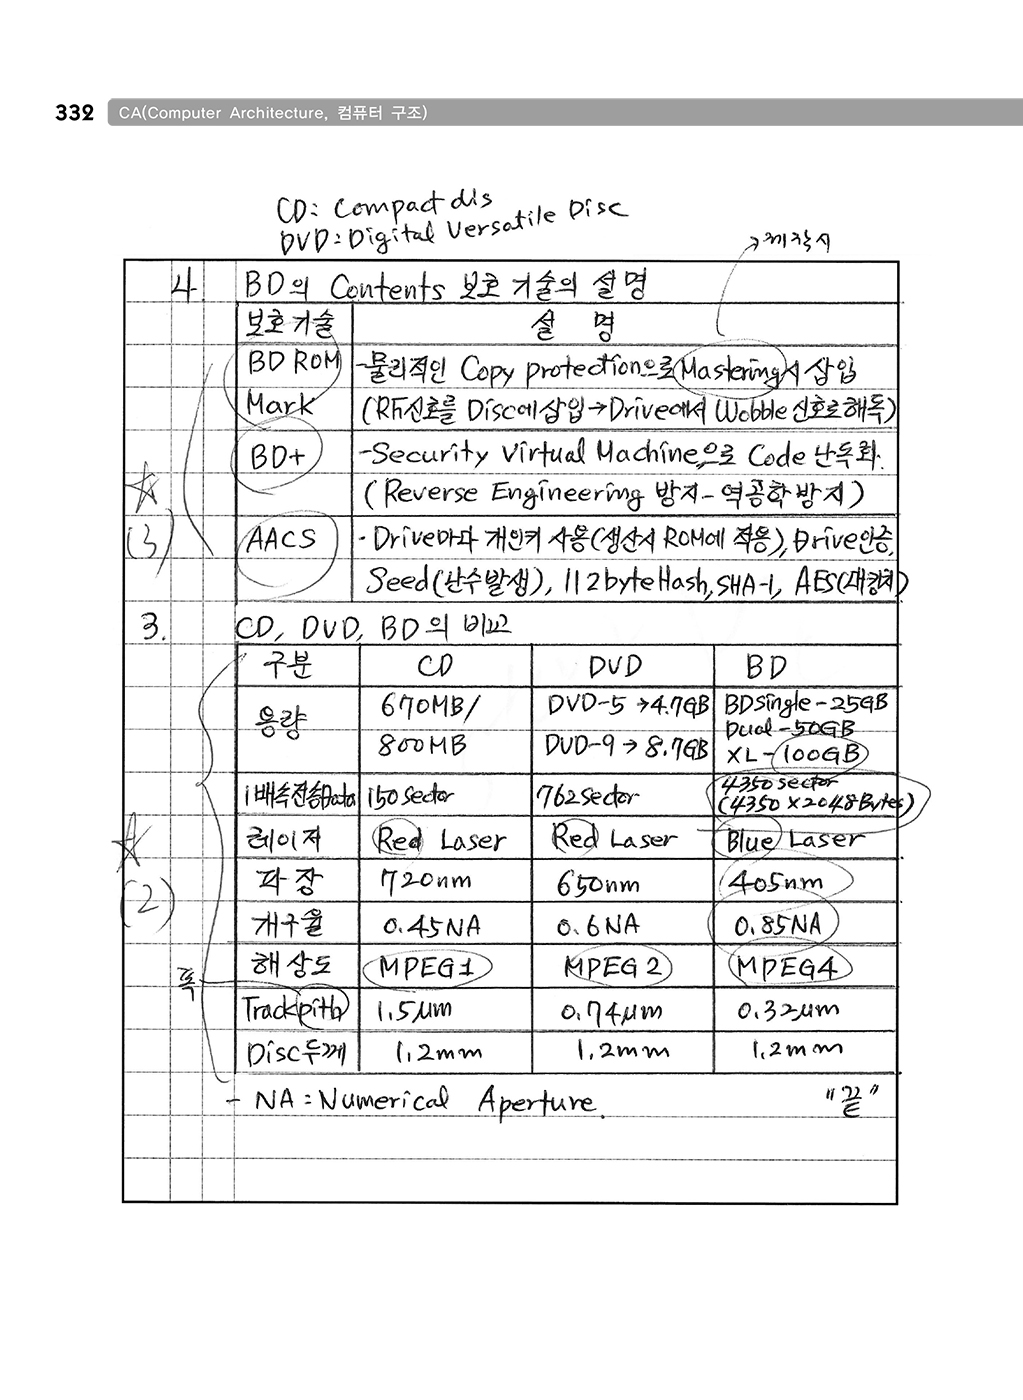 332 CA(Computer Architecture, 컴퓨터 구조)
CD: Compact dis
DVD: Digital Versatile Disc
제작시
4 BD의 Contents 보호 기술의 설명
보호기술 설 명
BD ROM -물리적인 Copy protection으로 Mastering시 삽입
Mark (RF신호를 Disc에 삽입→Drive에서 Wobble 신호로 해독)
BD+ -Security Virtual Machine으로 Code 난독화.
(Reverse Engineering 방지-역공학 방지)
☆
(3)
AACS ·Drive마다 개인키 사용(생산시 ROM에 적용), Drive인증,
Seed(난수발생), 112byteHash, SHA-1, AES(대칭키)
3. CD, DVD, BD의 비교
구분 CD DVD BD
용량 670MB/ DVD-5→4.7GB BDSingle-25GB
Dual-50GB
800MB DVD-9→8.7GB XL-100GB
1배속전송Data 150 Sector 762 Sector 4350 sector
(4350×2048Bytes)
레이저 Red Laser Red Laser Blue Laser
☆
(2)
파장 720nm 650nm 405nm
개구율 0.45NA 0.6NA 0.85NA
해상도 MPEG1 MPEG2 MPEG4
폭
Track pith 1.5μm 0.74μm 0.32μm
Disc두께 1.2mm 1.2mm 1.2mm
- NA: Numerical Aperture. "끝"